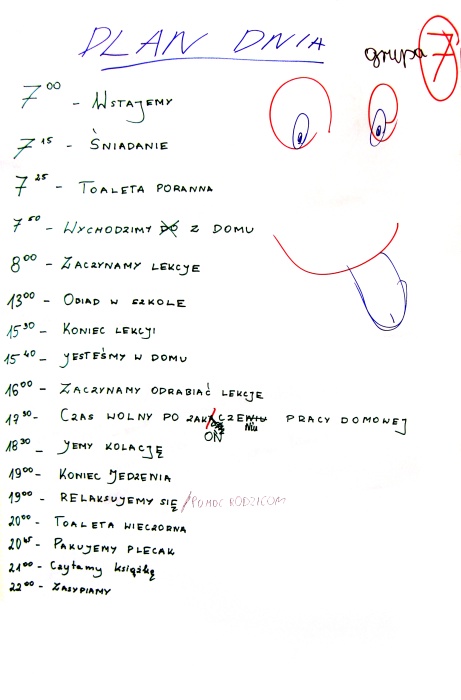 PLAN DNIA
grupa 7
7⁰⁰ - WSTAJEMY
7¹⁵ - ŚNIADANIE
7²⁵ - TOALETA PORANNA
7⁵⁰ - WYCHODZIMY Z DOMU
8⁰⁰ - ZACZYNAMY LEKCJE
13⁰⁰ - OBIAD W SZKOLE
15³⁰ - KONIEC LEKCJI
15⁴⁰ - JESTEŚMY W DOMU
16⁰⁰ - ZACZYNAMY ODRABIAĆ LEKCJE
17³⁰ - CZAS WOLNY PO ZAKOŃCZENIU PRACY DOMOWEJ
18³⁰ - JEMY KOLACJĘ
19⁰⁰ - KONIEC JEDZENIA
19⁰⁰ - RELAKSUJEMY SIĘ / POMOC RODZICOM
20⁰⁰ - TOALETA WIECZORNA
20⁴⁵ - PAKUJEMY PLECAK
21⁰⁰ - Czytamy książkę
22⁰⁰ - ZASYPIAMY